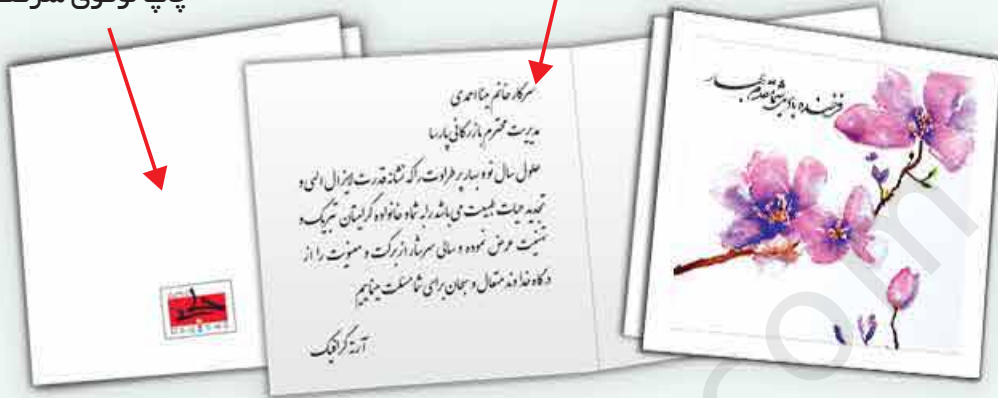 چاپ لوگوی شرکت
فرخنده باد بر شما مقدم بهار
سرکار خانم مینا احمدی
مدیریت محترم بازرگانی پارسا
حلول سال نو و بهار پر طراوت را که نشانه قدرت لایزال الهی و
تجدید حیات طبیعت می باشد را به شما و خانواده گرامیتان تبریک و
تهنیت عرض نموده و سالی سرشار از برکت و معنویت را از
درگاه خداوند متعال و سبحان برای شما مسئلت مینماییم
آرته گرافیک
com